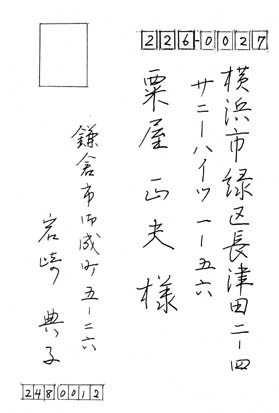 226-0027
横浜市緑区長津田二ー四
サニーハイツ一ー五六
粟屋正夫様
鎌倉市御成町五ー二六
岩崎典子
2480012